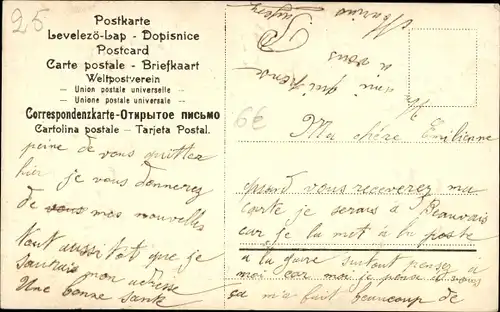 25
Postkarte
Levelezö-Lap - Dopisnice
Postcard
Carte postale - Briefkaart
Weltpostverein
— Union postale universelle —
— Unione postale universale —
Correspondenzkarte-Открытое письмо
Cartolina postale — Tarjeta Postal.
6€
Ma chère Emilienne
quand vous receverez ma
carte je serais à Beauvais
car je la met à la poste
à la gare surtout pensez à
moi car moi je pense à vous
ça m'a fait beaucoup de
peine de vous quitter
hier je vous donnerez
de vous mes nouvelles
tout aussitot que je
saurais mon adresse
Une bonne santé
ami qui pense
à vous